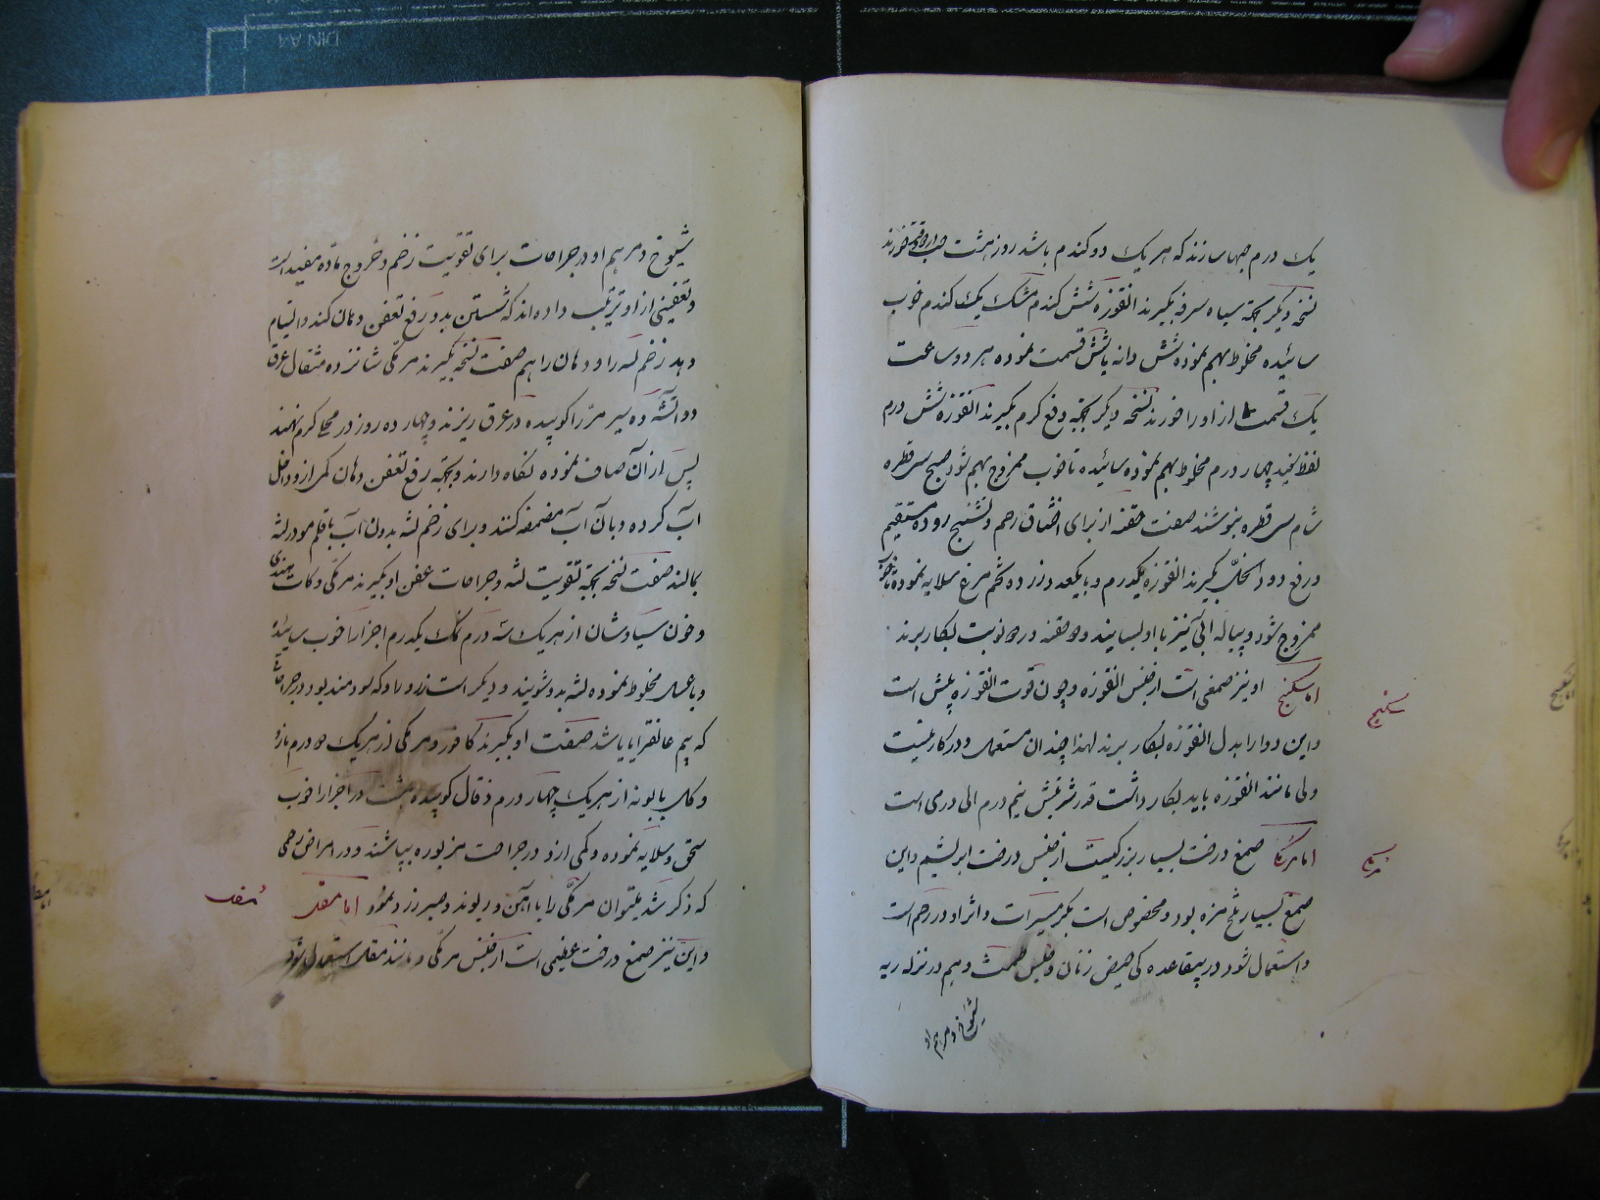 یک درم حبها سازند که هر یک دو کندم باشد روز هشت حب
نسخه دیکر بجهة سیاه سرفه بکیرند انقوزه شش کندم مشک یک کندم خوب
سائیده مخلوط بهم نموده شش دانه یا شش قسمت نموده هر دو ساعت
یک قسمت از او را خورند نسخه دیکر بجهة دفع کرم بکیرند انقوزه شش درم
چهار درم مخلوط بهم نموده سائیده تا خوب ممزوج بهم شود صبح سی قطره
شام سی قطره بنوشند صفت حقنه از برای اختناق رحم و تشنیج روده مستقیم
و رفع دود الخل بکیرند انقوزه یکدرم و با یکعدد زرده تخم مرغ سلایه نموده تا خوب
ممزوج شود و پیاله ابی کنیز با او بسایند و حقنه در دو نوبت بکار برند
اما سکبنج او نیز صمغی است از جنس انقوزه و چون قوت انقوزه بیش است
و این دوا را بدل انقوزه بکار برند لهذا چندان مستعمل و در کار نیست
ولی مانند انقوزه باید بکار داشت قدر شربتش نیم درم الی درمی است
اما مرمکی صمغ درخت بسیار بزرکیست از جنس درخت ابریشم و این
صمغ بسیار تلخ مزه بود و مخصوص است بکرمسیرات و اثر او در رحم است
و استعمال شود در بیقاعده کی حیض زنان و حبس طمث و هم در نزله ریه
سکبنج
مرمکی
شیوخ و مرهم او
شیوخ و مرهم او در جراحات برای تقویت زخم و خروج ماده مفید است
و تعفینی از او ترتیب داده اند که شستن بدو رفع تعفن دهان کند و التیام
دهد زخم لثه را و دهان را هم صفت نسخه بکیرند مرمکی شانزده مثقال عرق
دو آتشه ده سیر مر را کوبیده در عرق ریزند و چهارده روز در محل کرم نهند
پس از آن صاف نموده نکاه دارند و بجهة رفع تعفن دهان کمی از او داخل
آب کرده و بآن آب مضمضه کنند و برای زخم لثه بدون آب با قلم مو در لثه
بمالند صفت نسخه بجهة تقویت لثه و جراحات عفن او بکیرند مرمکی و کات هندی
و خون سیاوشان از هر یک سه درم نمک یکدرم اجزا را خوب سائیده
و با عسل مخلوط نموده لثه بدو شویند و دیکر است زرورا و که سودمند بود در جراحات
که بیم عانقرایا باشد صفت او بکیرند کافور و مرمکی از هر یک دو درم مازو
و کل بابونه از هر یک چهار درم ذغال کوبیده هشت درم اجزا را خوب
سحق و سلایه نموده و کمی از او در جراحت مزبوره بپاشند و در امراض رحمی
که ذکر شد میتوان مرمکی را با آهن و ریوند و صبر زرد نمود اما مقل
و این نیز صمغ درخت عظیمی است از جنس مرمکی و مانند مقل استعمال شود
مقل